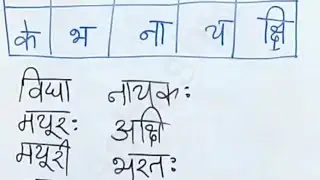 के भ ना य क्षि
विद्या नायकः
मयूरः अक्षि
मयूरी भरतः